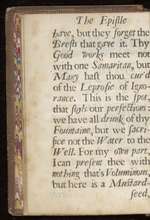 The Epistle
have, but they forget the
Brest that gave it. Thy
Good works meet not
with one Samaritan, but
Many hast thou cur'd
of the Leprosie of Igno-
rance. This is the spot,
that foyls our perfection:
we have all drunk of thy
Fountaine, but we sacri-
fice not the Water to the
Well. For my own part,
I can present thee with
nothing that's Voluminous,
but here is a Mustard-
seed,